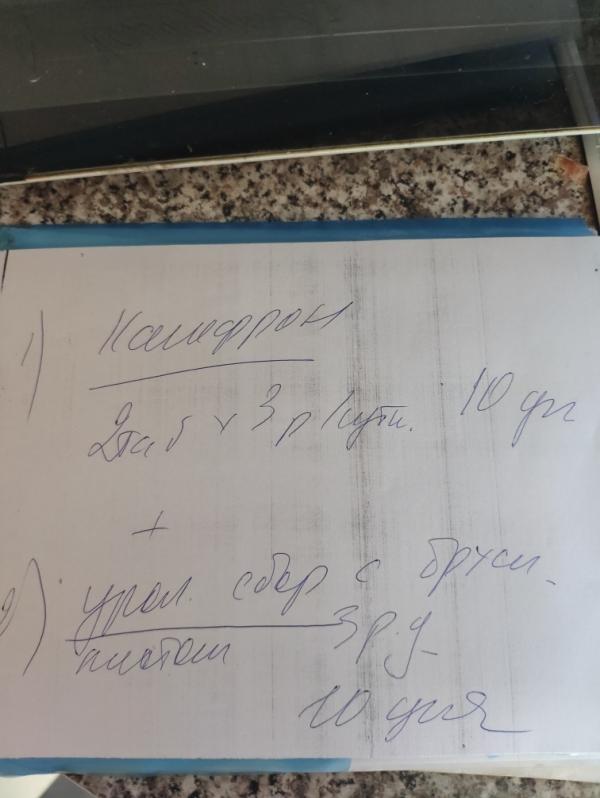 1) Канефрон
2 таб х 3 р/сутки. 10 дн
+
2) урол. сбор с брусн.
листом 3 р.д
10 дня